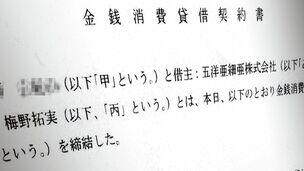 金銭消費貸借契約書
（以下「甲」という。）と借主：五洋亜細亜株式会社（以下「
梅野拓実（以下、「丙」という。）とは、本日、以下のとおり金銭消費
という。）を締結した。